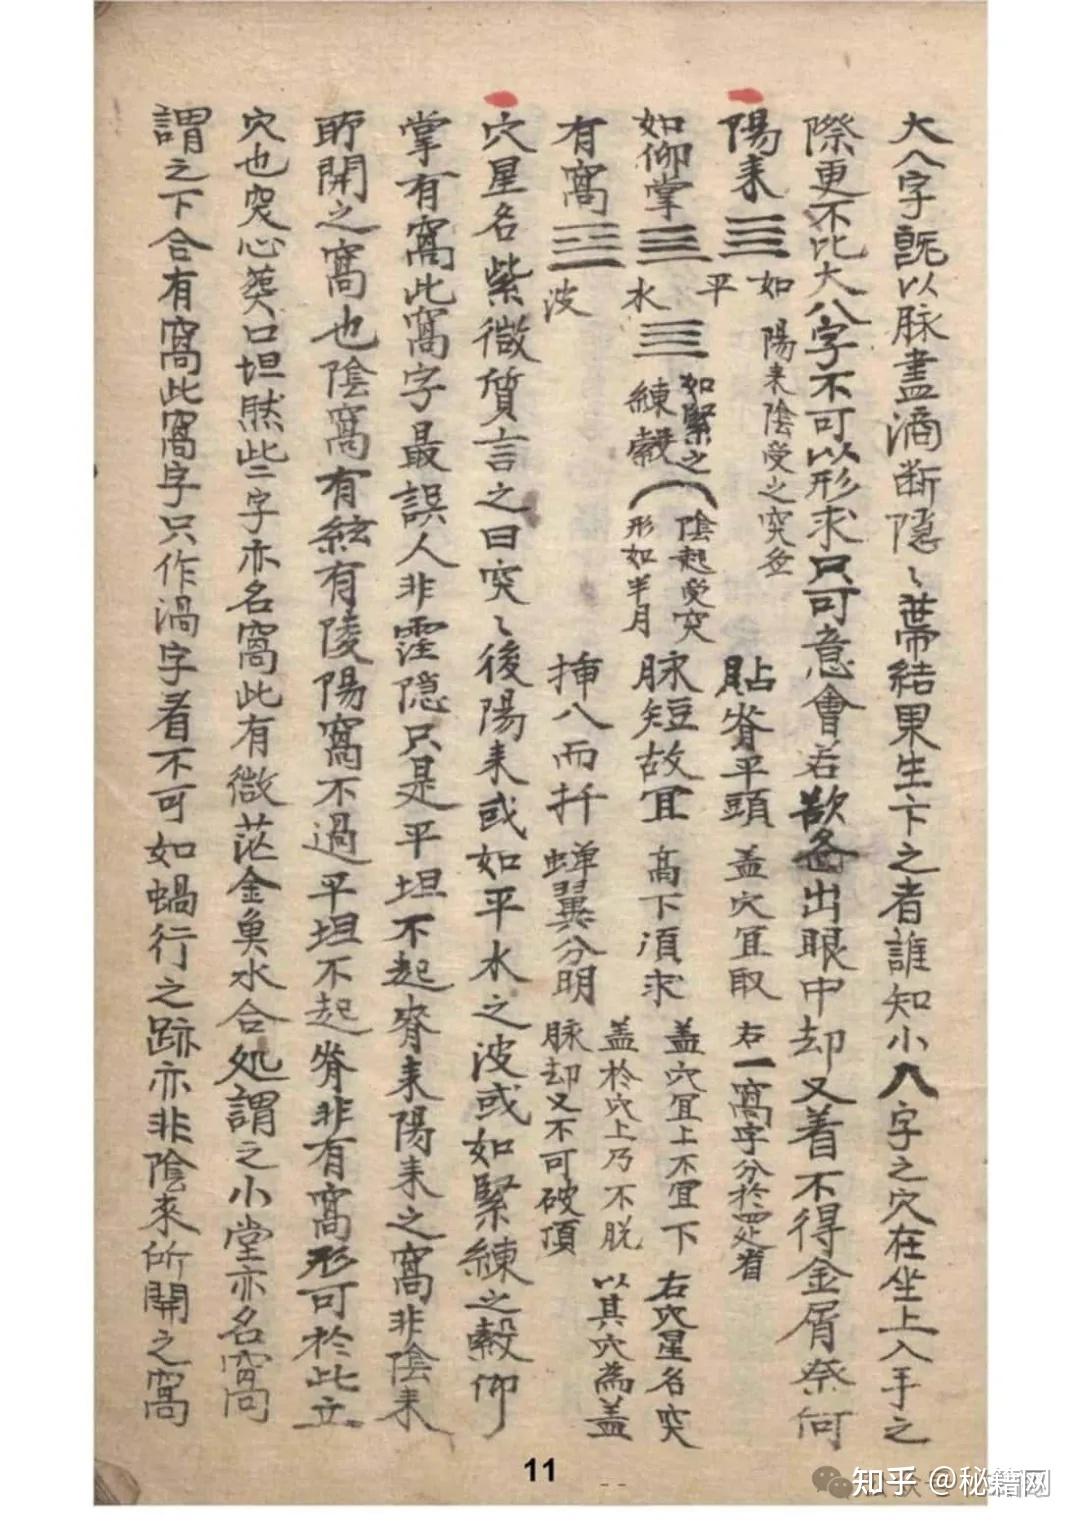 大八字既以脉盡滴断隠〻蒂結果生下之者誰知小八字之穴在坐上入手之
際更不比大八字不可以形求只可意會若欲备出眼中却又着不得金屑奈何
陽来 如 陽来陰受之突必 貼脊平頭 盖穴宜取 右一窩字分於四处看
如仰掌 平 水 如緊之練縠 陰起受突形如半月 脉短故宜 高下湏求 盖穴宜上不宜下盖於穴上乃不脱 右穴星名突以其穴為盖
有窩 波 挿八而扦 蝉翼分明 脉却又不可破頂
穴星名紫微質言之曰突〻後陽来或如平水之波或如緊練之縠仰
掌有窩此窩字最誤人非窪隠只是平坦不起脊来陽来之窩非陰来
所開之窩也陰窩有絃有陵陽窩不過平坦不起脊非有窩形可於此立
穴也突心葬口坦然此二字亦名窩此有微茫金魚水合处謂之小堂亦名窩
謂之下合有窩此窩字只作渦字看不可如蝸行之跡亦非陰來所開之窩
11
知乎 @秘籍网